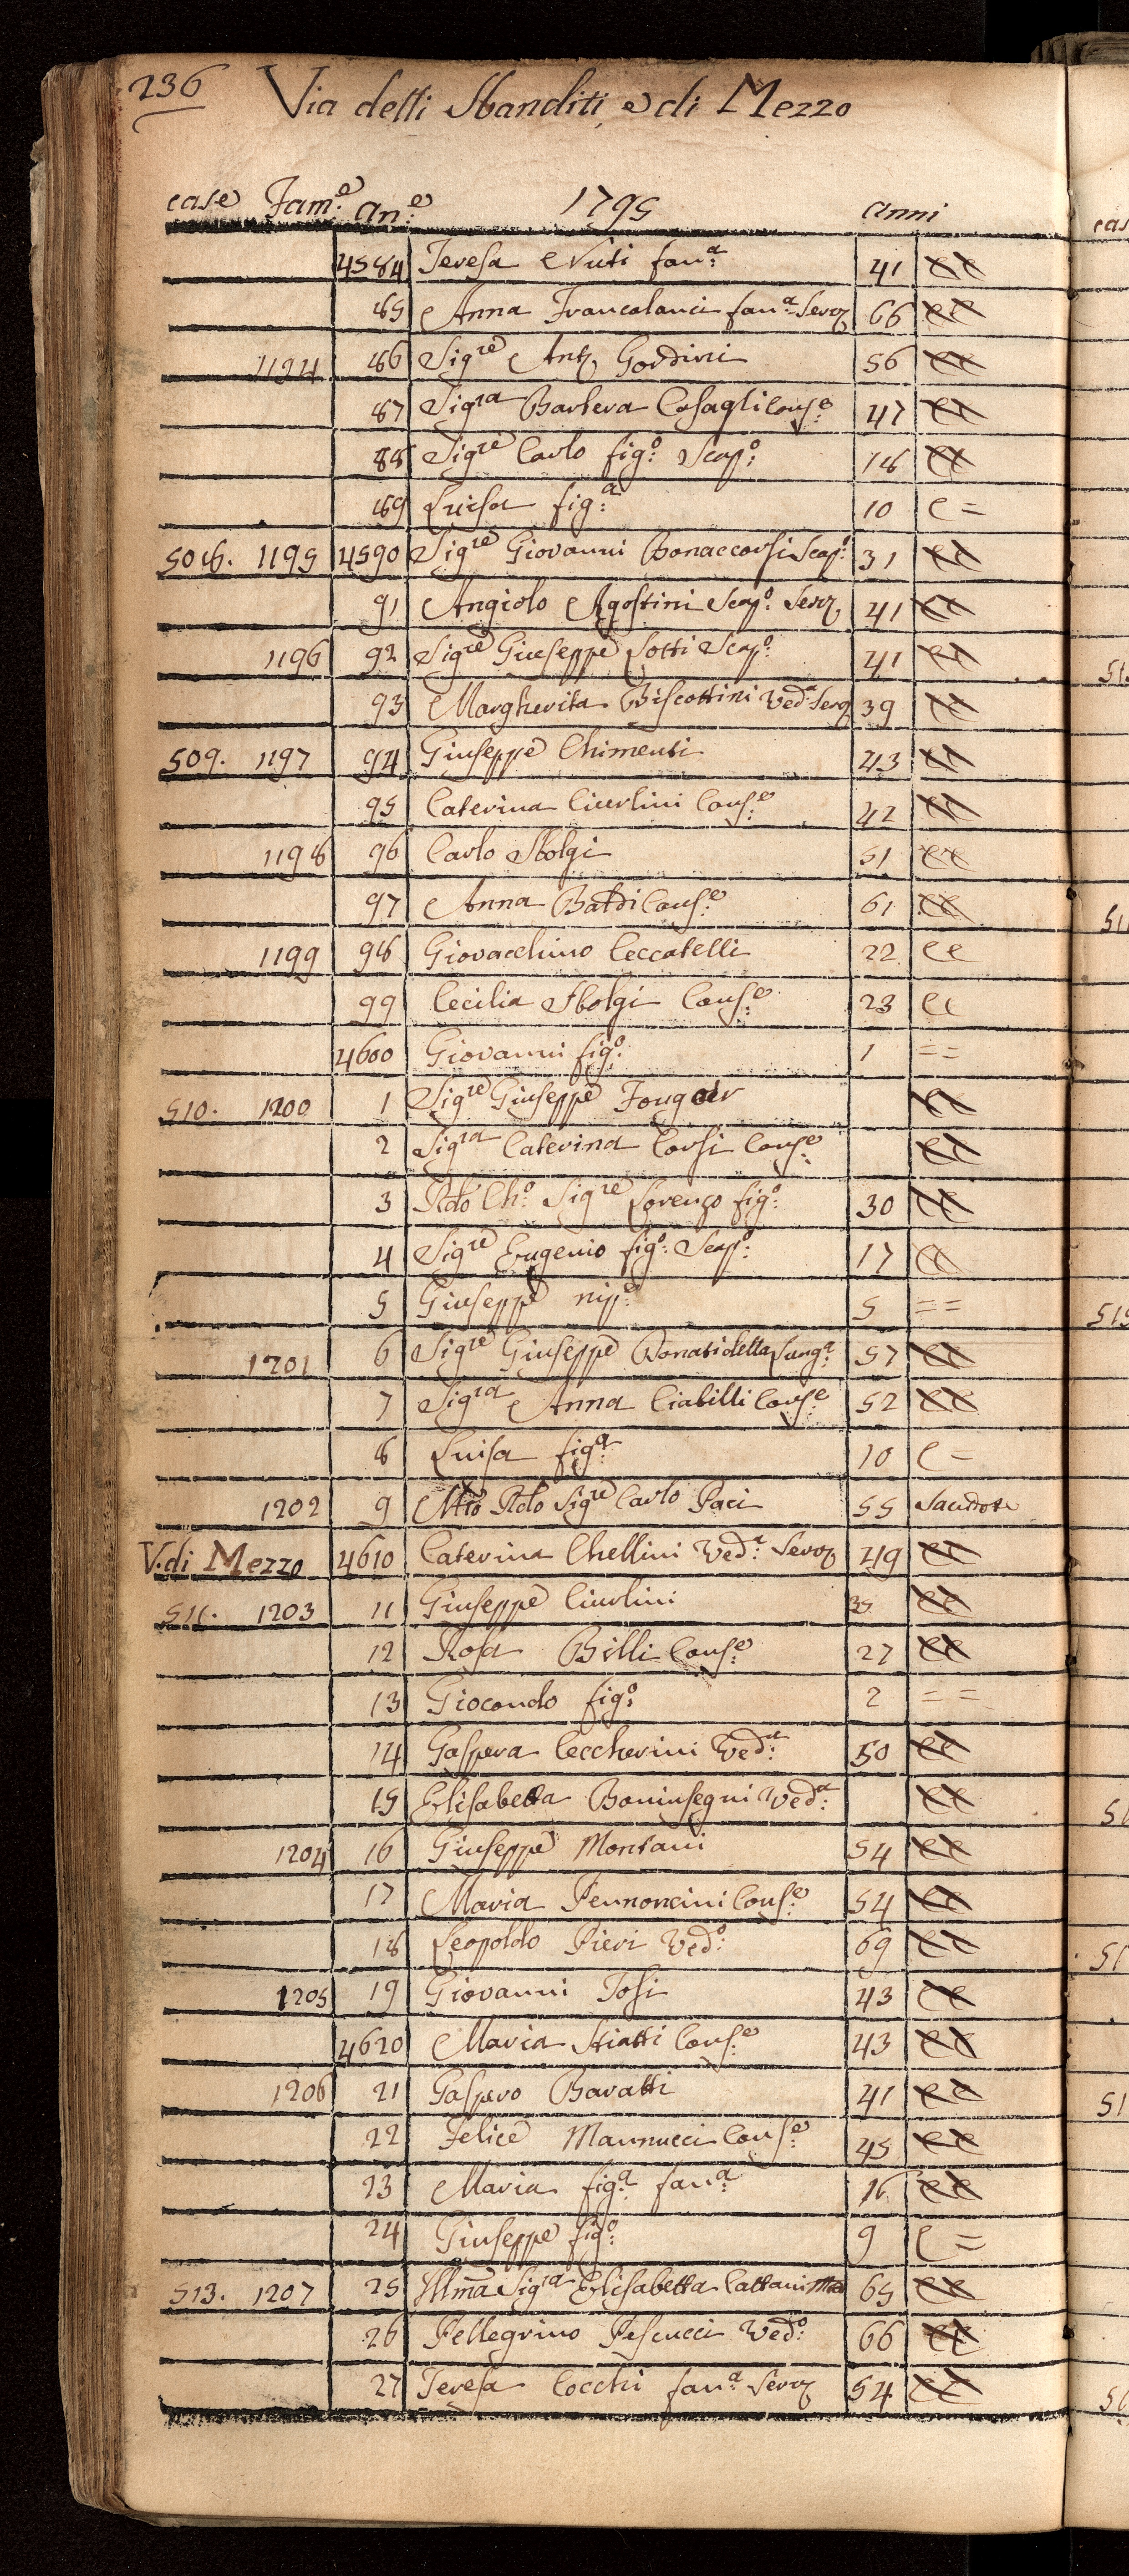 236 Via delli Sbanditi, e di Mezzo
case Fam:e an:e 1795 anni
4584 Teresa Nuti fan:a 41 cc
85 Anna Francalanci fan:a Serv 66 cc
1194 86 Sigre Ant. Gordini 56 cc
87 Sigra Barbera Casagli Cons:e 47 cc
88 Sigre Carlo fig:o Scap:o 18 cc
89 Luisa fig:a 10 c =
508. 1195 4590 Sigre Giovanni Bonaccorsi Scap:o 31 cc
91 Angiolo Agostini Scap:o Serv 41 cc
1196 92 Sigre Giuseppe Sotti Scap:o 41 cc
93 Margherita Biscottini Ved:a Serv 39 cc
509. 1197 94 Giuseppe Chimenti 43 cc
95 Caterina Ciurlini Cons:e 42 cc
1198 96 Carlo Sbolgi 51 cc
97 Anna Baldi Cons:e 61 cc
1199 98 Giovacchino Ceccatelli 22 cc
99 Cecilia Sbolgi Cons:e 23 cc
4600 Giovanni fig:o 1 ==
510. 1200 1 Sigre Giuseppe cc
2 Sigra Caterina Corsi Cons:e cc
3 Rdo Ch:o Sigre Lorenzo fig:o 30 cc
4 Sigre Eugenio fig:o Scap:o 17 cc
5 Giuseppe nip:e 5 ==
1201 6 Sigre Giuseppe Donati della 57 cc
7 Sigra Anna Ciabilli Cons:e 52 cc
8 Luisa fig:a 10 c -
1202 9 Mto Rdo Sigre Carlo Paci 55 Sacerdote
V. di Mezzo 4610 Caterina Chellini Ved:a Serv 49 cc
511. 1203 11 Giuseppe Ciurlini 35 cc
12 Rosa Billi Cons:e 27 cc
13 Giocondo fig:o 2 = =
14 Gaspera Ceccherini Ved:a 50 cc
15 Elisabetta Boninsegni Ved:a cc
1204 16 Giuseppe Montani 54 cc
17 Maria Pennoncini Cons:e 54 cc
18 Leopoldo Pieri Ved:o 69 cc
1205 19 Giovanni Tosi 43 cc
4620 Maria Stiatti Cons:e 43 cc
1206 21 Gaspero Baratti 41 cc
22 Felice Mannucci Cons:e 45 cc
23 Maria fig:a fan:a 16 cc
24 Giuseppe fig:o 9 c =
513. 1207 25 Illma Sigra Elisabetta Cattani 65 cc
26 Pellegrino Pescucci Ved:o 66 cc
27 Teresa Cocchi fan:a Serv 54 cc